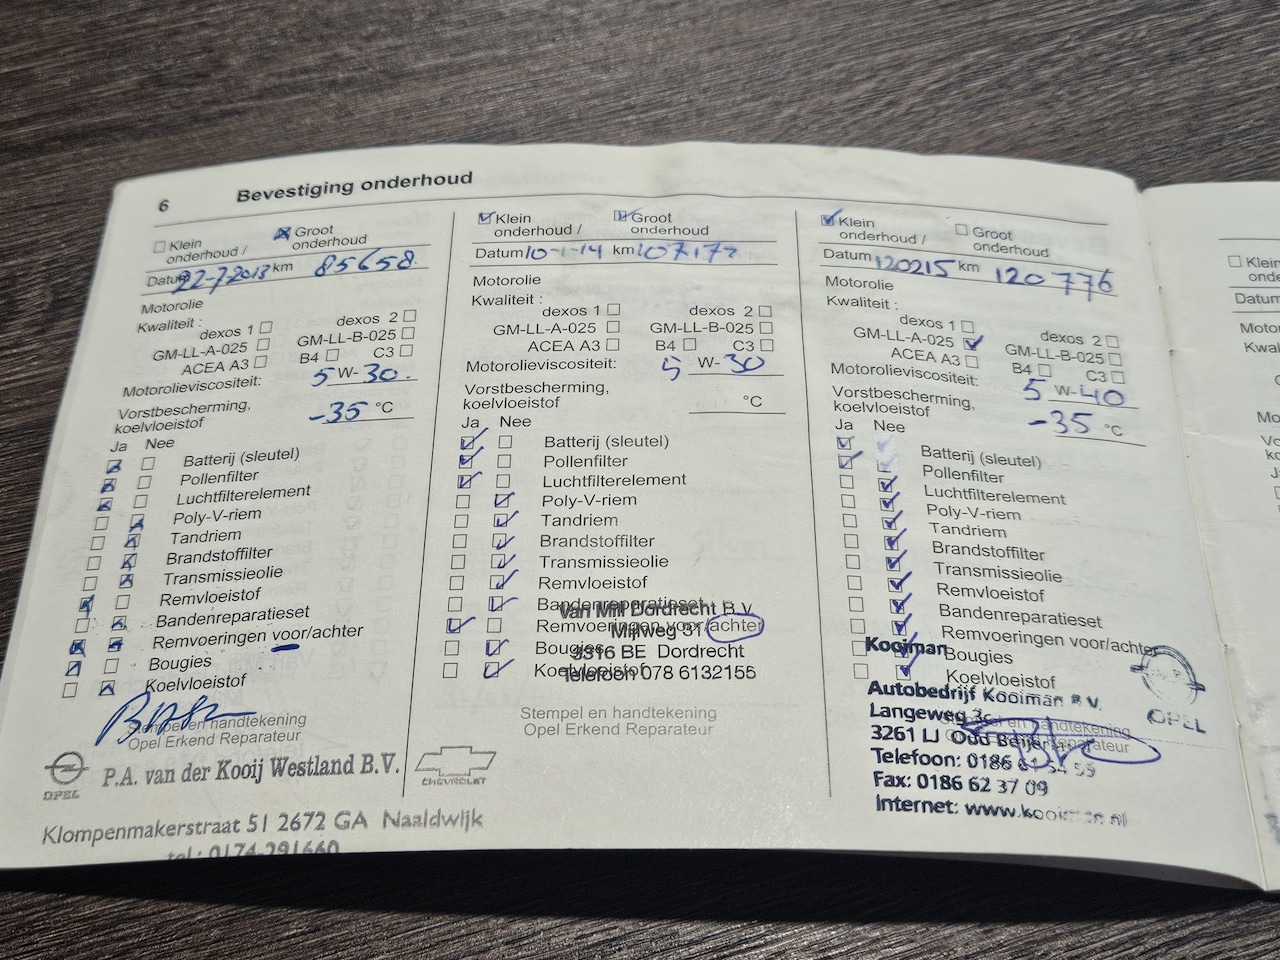 6 Bevestiging onderhoud
Klein onderhoud / Groot onderhoud
Datum 22-7-2013 km 85658
Motorolie
Kwaliteit :
dexos 1 dexos 2
GM-LL-A-025 GM-LL-B-025
ACEA A3 B4 C3
Motorolieviscositeit: 5 W- 30
Vorstbescherming,
koelvloeistof -35 °C
Ja Nee
Batterij (sleutel)
Pollenfilter
Luchtfilterelement
Poly-V-riem
Tandriem
Brandstoffilter
Transmissieolie
Remvloeistof
Bandenreparatieset
Remvoeringen voor/achter
Bougies
Koelvloeistof
Stempel en handtekening
Opel Erkend Reparateur
OPEL P.A. van der Kooij Westland B.V. CHEVROLET
Klompenmakerstraat 51 2672 GA Naaldwijk
tel: 0174-291660
Klein onderhoud / Groot onderhoud
Datum 10-1-14 km
Motorolie
Kwaliteit :
dexos 1 dexos 2
GM-LL-A-025 GM-LL-B-025
ACEA A3 B4 C3
Motorolieviscositeit: 5 W- 30
Vorstbescherming,
koelvloeistof °C
Ja Nee
Batterij (sleutel)
Pollenfilter
Luchtfilterelement
Poly-V-riem
Tandriem
Brandstoffilter
Transmissieolie
Remvloeistof
Bandenreparatieset
Van Mill Dordrecht B.V.
Remvoeringen voor/achter
Mijlweg 31
Bougies
3316 BE Dordrecht
Koelvloeistof
Telefoon 078 6132155
Stempel en handtekening
Opel Erkend Reparateur
Klein onderhoud / Groot onderhoud
Datum 120215 km 120 776
Motorolie
Kwaliteit :
dexos 1 dexos 2
GM-LL-A-025 GM-LL-B-025
ACEA A3 B4 C3
Motorolieviscositeit: 5 W- 40
Vorstbescherming,
koelvloeistof -35 °C
Ja Nee
Batterij (sleutel)
Pollenfilter
Luchtfilterelement
Poly-V-riem
Tandriem
Brandstoffilter
Transmissieolie
Remvloeistof
Bandenreparatieset
Remvoeringen voor/achter
Kooiman
Bougies
Koelvloeistof
Autobedrijf Kooiman B.V.
OPEL
Langeweg
Stempel en handtekening
3261 LJ Oud Beijer
Opel Erkend Reparateur
Telefoon: 0186
Fax: 0186 62 37 09
Internet: www.kooiman.nl
Klein
Datum